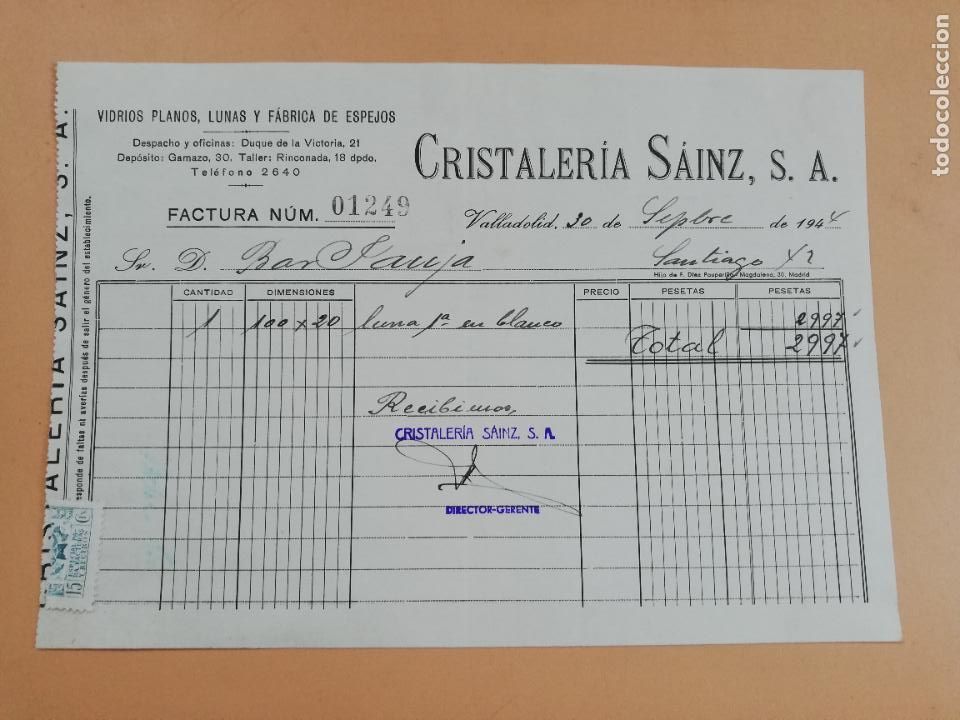 VIDRIOS PLANOS, LUNAS Y FÁBRICA DE ESPEJOS
Despacho y oficinas: Duque de la Victoria, 21
Depósito: Gamazo, 30. Taller: Rinconada, 18 dpdo.
Teléfono 2640
CRISTALERÍA SÁINZ, S. A.
FACTURA NÚM. 01249
Valladolid, 30 de Sepbre de 1944
Sr. D. Bar Santiago
Hijo de F. Díez Pasperijo.-Magdalena, 30, Madrid
CANTIDAD DIMENSIONES PRECIO PESETAS PESETAS
1 100 x 20 luna 1ª en blanco 2997
Total 2997
Recibimos
CRISTALERÍA SÁINZ, S. A.
DIRECTOR-GERENTE
ALERÍA SÁINZ, S. A.
esponde de faltas ni averías después de salir el género del establecimiento.
15 ESPECIAL PARA FACTURAS Y RECIBOS CTS
todocoleccion